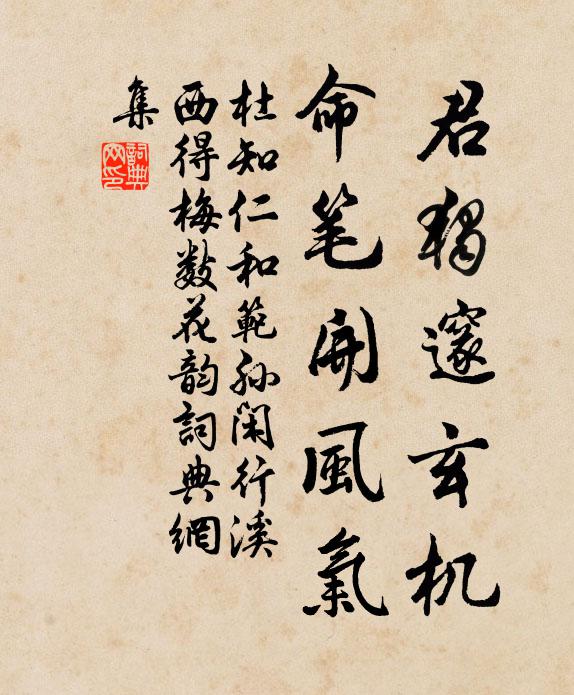 君獨邃玄机
命笔開風氣
杜知仁和範孙閑行溪
西得梅数花韵詞典網
集
詞典網印